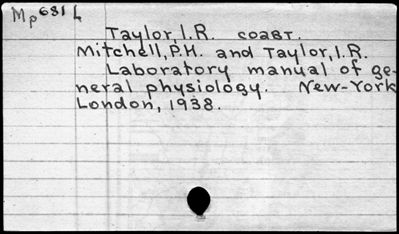 Mp 681 L
Taylor, I.R. соавт.
Mitchell, P.H. and Taylor, I.R.
Laboratory manual of ge-
neral physiology. New-York
London, 1938.